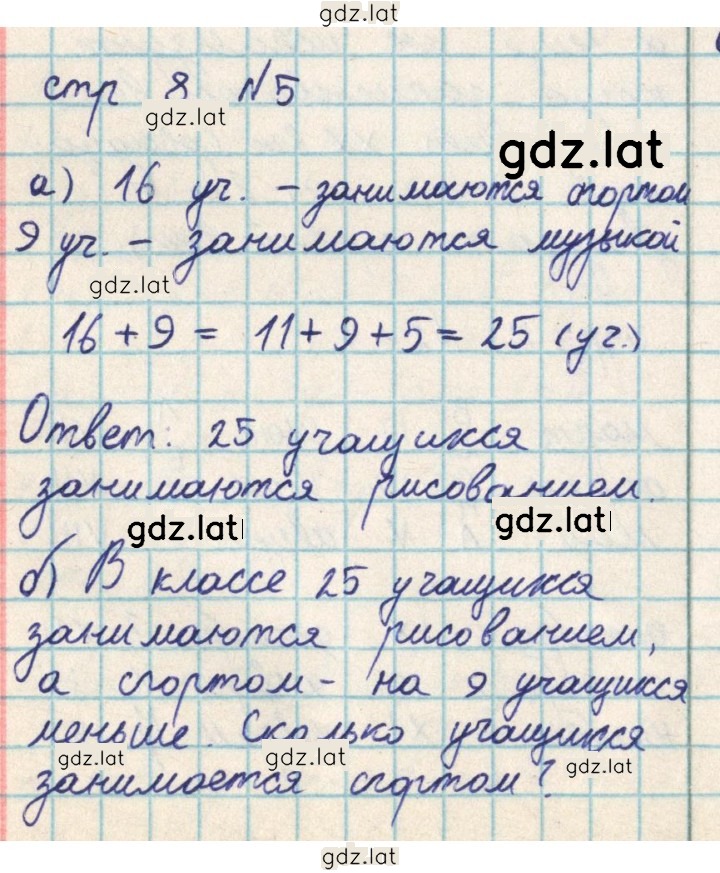 gdz.lat
стр 8 №5
gdz.lat
gdz.lat
а) 16 уч. – занимаются спортом
9 уч. – занимаются музыкой
gdz.lat
16 + 9 = 11 + 9 + 5 = 25 (уч.)
Ответ: 25 учащихся
занимаются рисованием.
gdz.lat gdz.lat
б) В классе 25 учащихся
занимаются рисованием,
а спортом – на 9 учащихся
меньше. Сколько учащихся
gdz.lat gdz.lat gdz.lat
занимается спортом?
gdz.lat